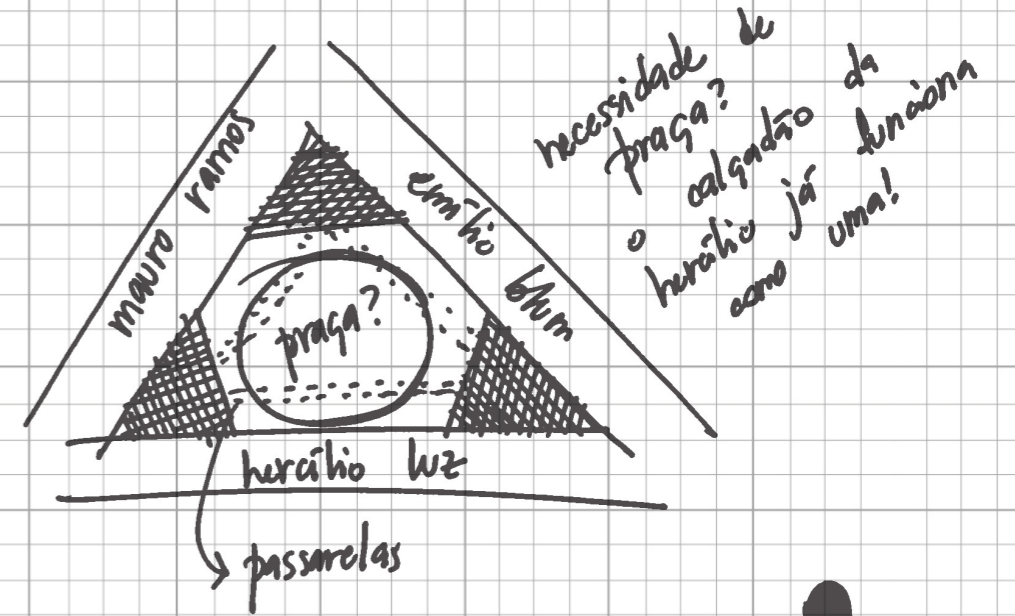 mauro ramos
emílio blum
praça?
hercílio luz
passarelas
necessidade de
praça?
o calçadão da
hercílio já funciona
como uma!